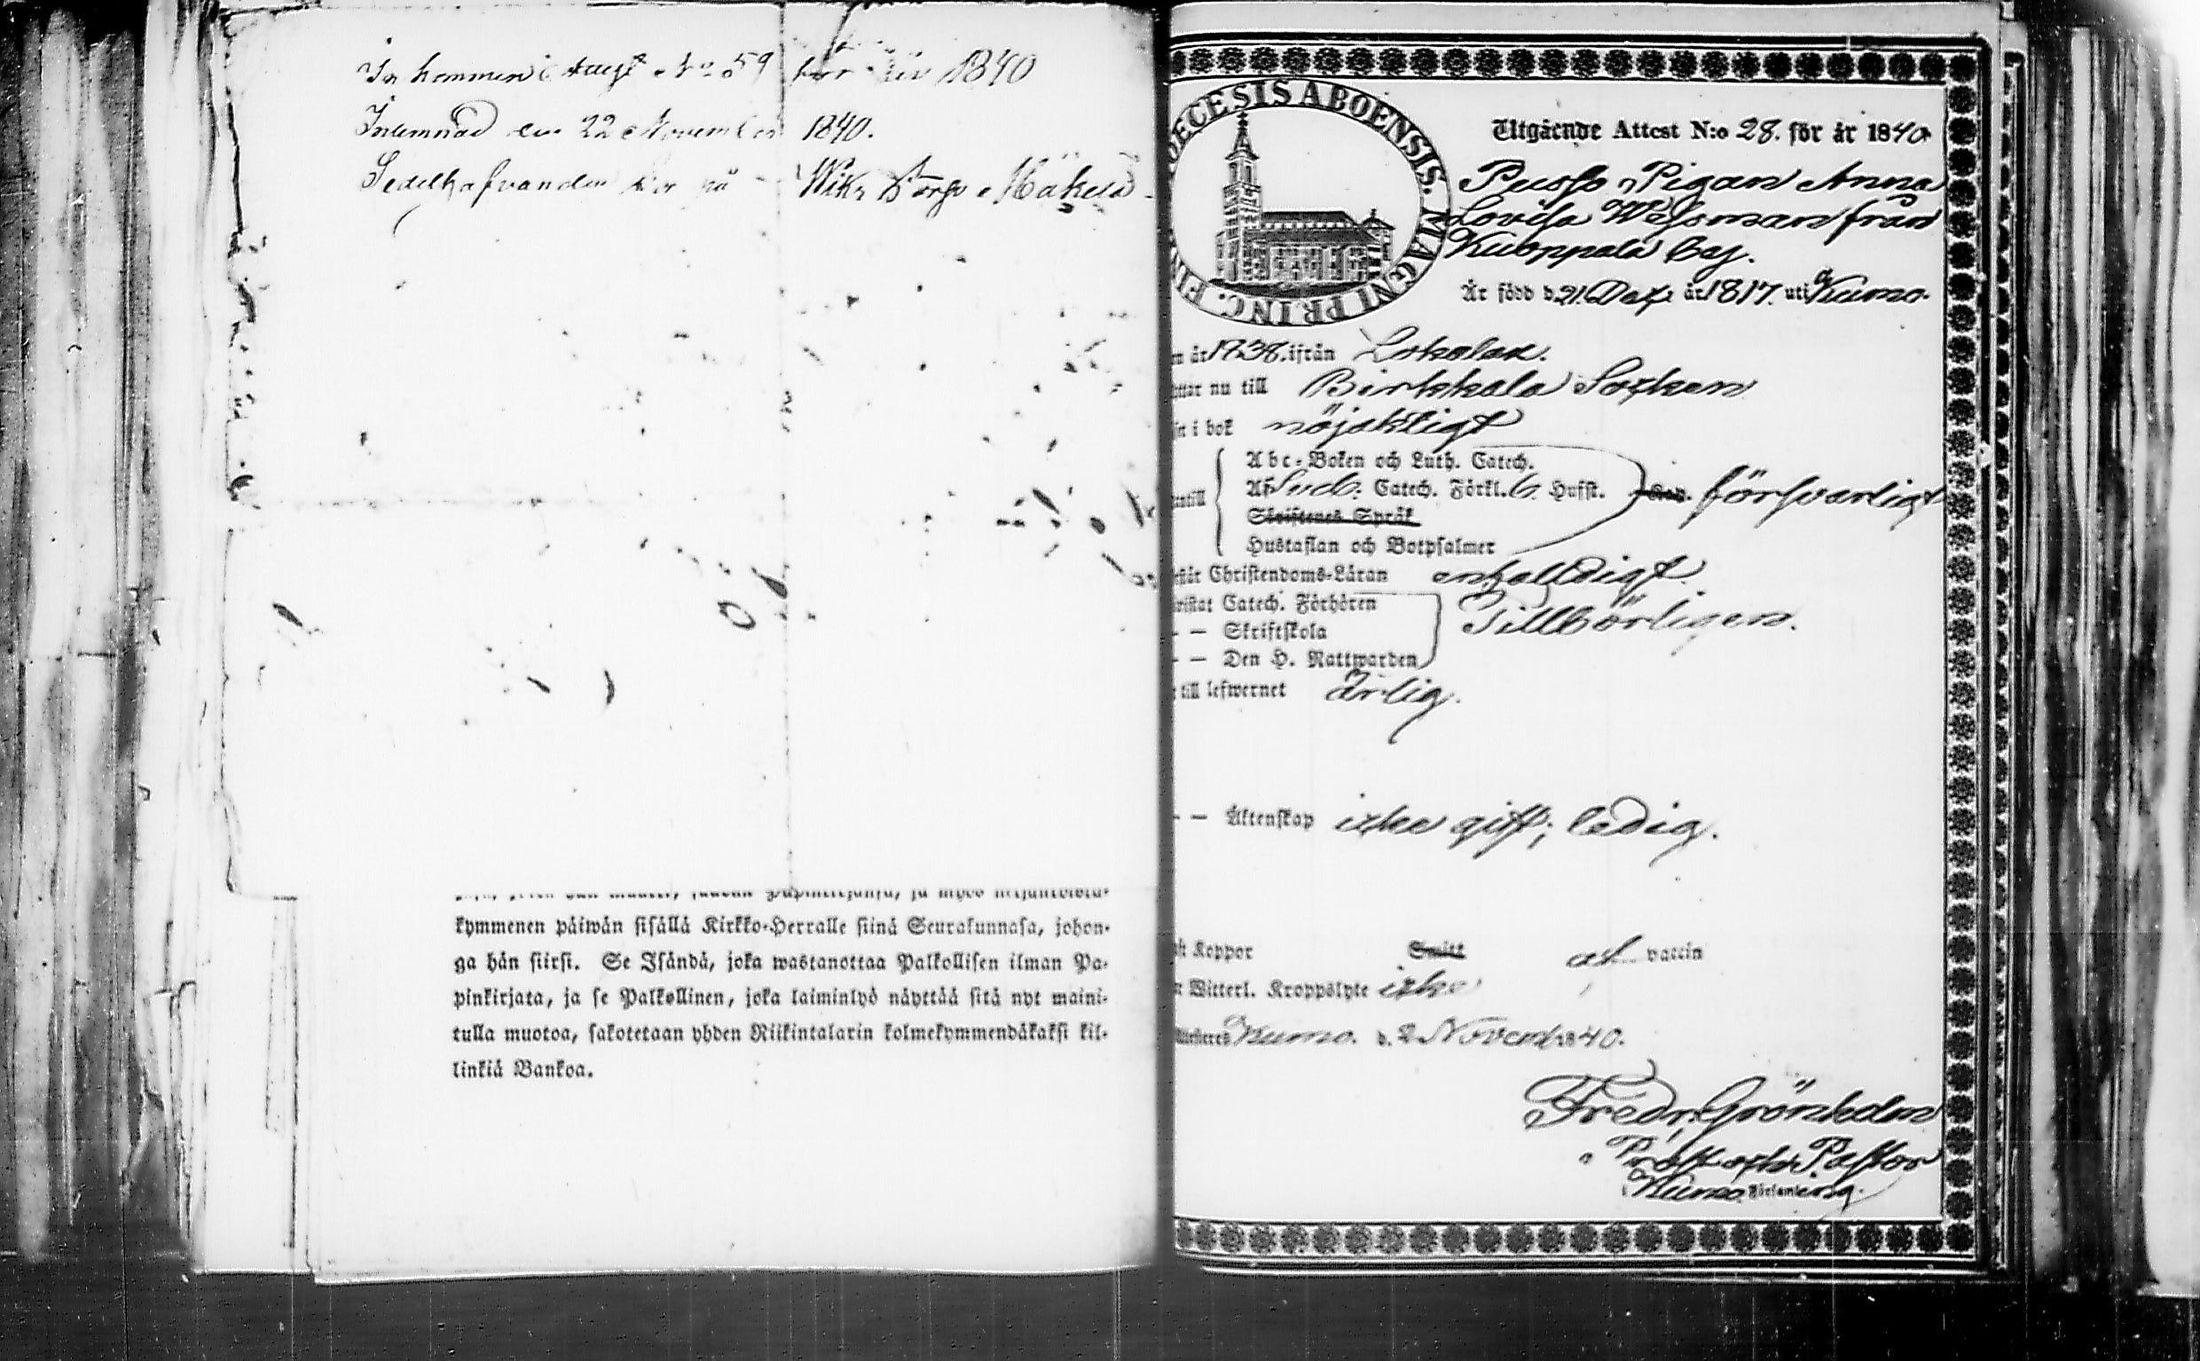 Inkommen Attest No 59 för år 1840
Inlemnad den 22 November 1840.
Sedelhafvanden bor på Mäkelä
kymmenen päiwän sisällä Kirkko-Herralle siinä Seurakunnasa, johon-
ga hän siirsi. Se Isändä, joka wastanottaa Palkollisen ilman Pa-
pinkirjata, ja se Palkollinen, joka laiminlyö näyttää sitä nyt maini-
tulla muotoa, sakotetaan yhden Riikintalarin kolmekymmendäkaksi kil-
linkiä Bankoa.
DIOECESIS ABOENSIS. MAGNI PRINC. FIN
Utgående Attest N:o 28. för år 1840
Pigan Anna
Lovisa Walsman från
Kuoppala by.
Är född d. 21. Dec. år 1817. uti Kumo.
år 1838. ifrån Lokalax.
nu till Birkkala Socken
i bok nöjaktigt
Abc-Boken och Luth. Catech.
Af Sveb. Catech. Förkl. 6 Hufst. försvarligt
Skriftenes Språk
Hustaflan och Botpsalmer
Christendoms-Läran enfalldigt.
Catech. Förhören
— — Skriftskola Tillbörligen.
— — Den H. Nattwarden
till lefwernet ärlig.
— — Äktenskap icke gift; ledig.
Koppor af vaccin
Witterl. Kroppslyte icke
Kumo. d. 2 Novemb. 1840.
Fredr. Grönholm
Prost och Pastor
i Kumo Församling.